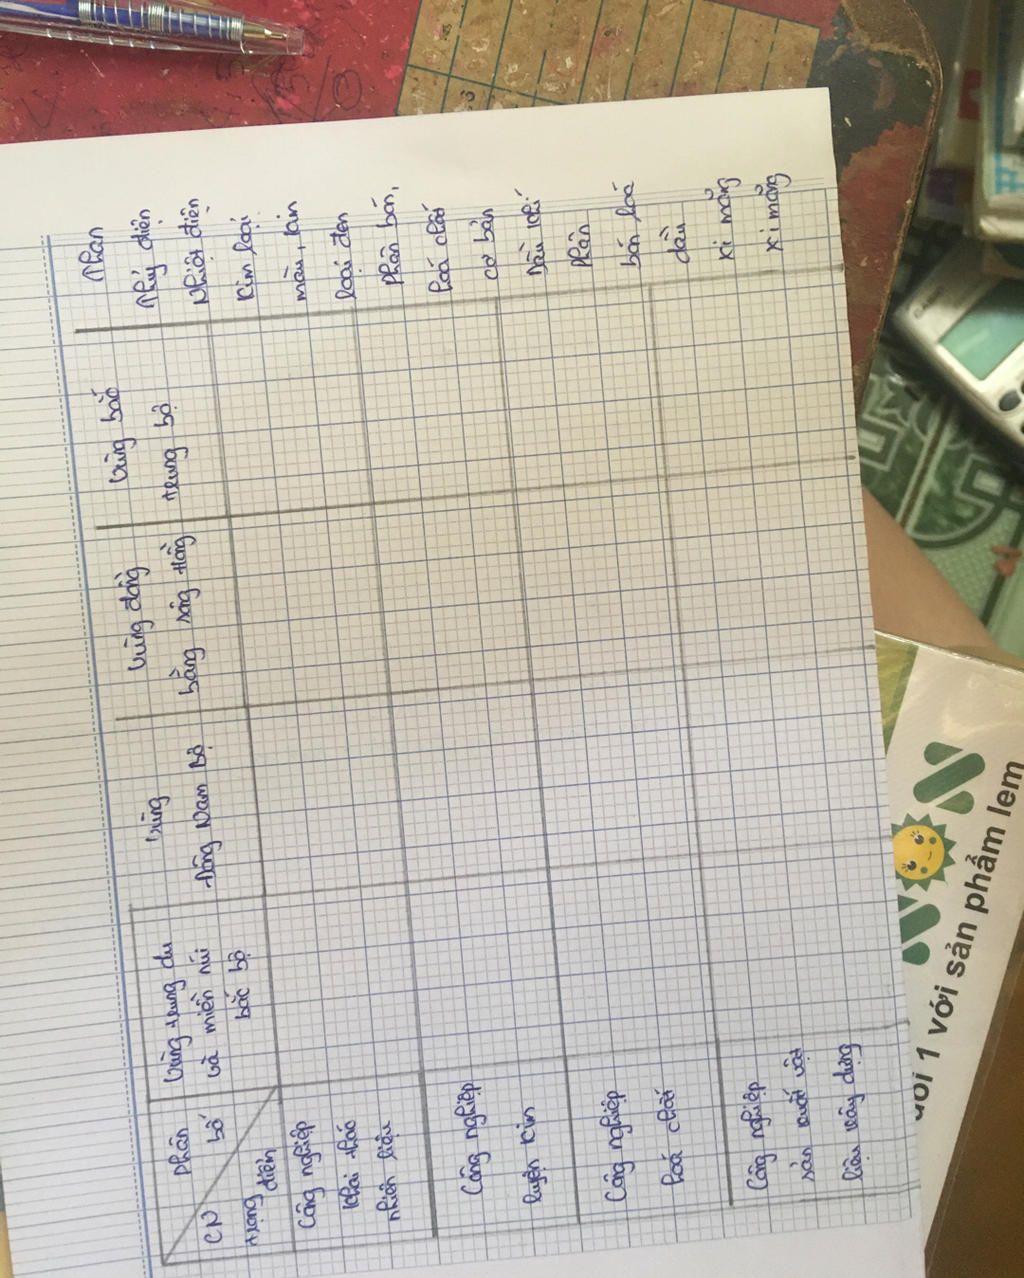 Phân
bố
CN
trọng điểm
Vùng trung du
và miền núi
bắc bộ
Vùng
Đông Nam Bộ
Vùng đồng
bằng sông Hồng
Vùng bắc
trung bộ
Công nghiệp
khai thác
nhiên liệu
Công nghiệp
luyện kim
Công nghiệp
hoá chất
Công nghiệp
sản xuất vật
liệu xây dựng
Than
Thủy điện
Nhiệt điện
Kim loại
màu, kim
loại đen
Phân bón,
hoá chất
cơ bản
Dầu khí
Phân
bón hoá
dầu
xi măng
xi măng
với sản phẩm lem